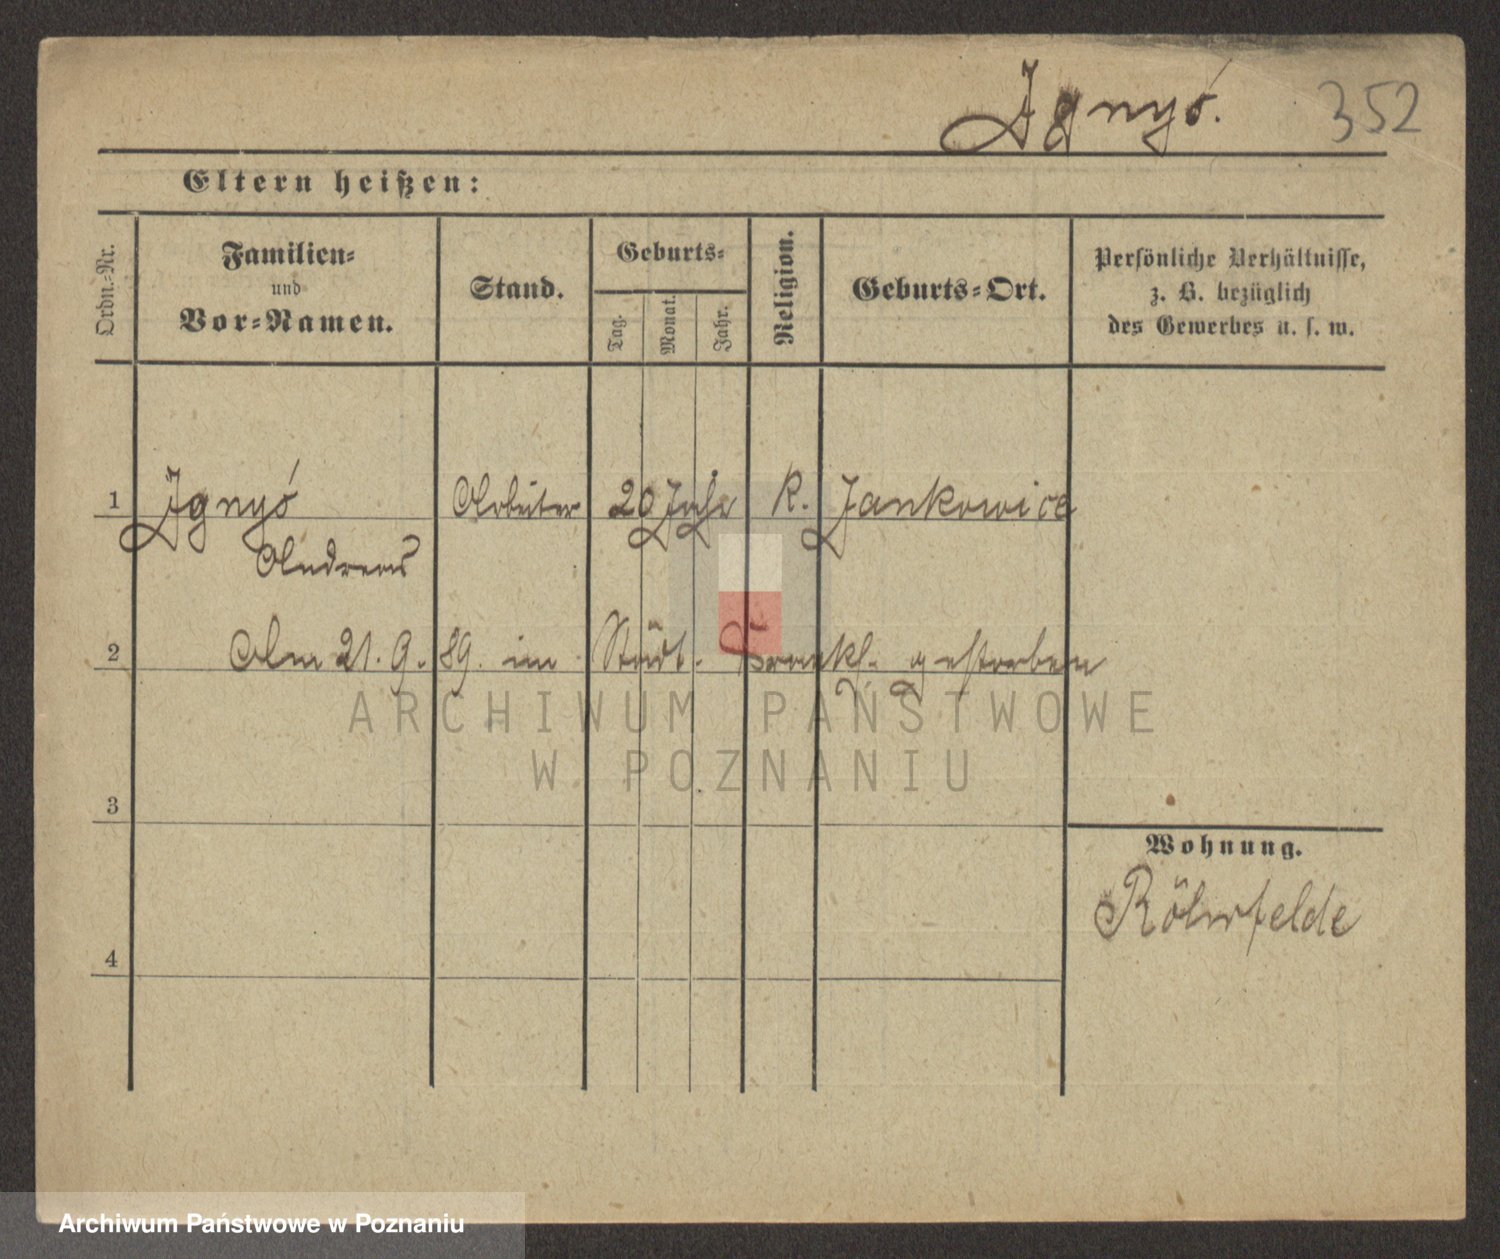 Jgnyś. 352
Eltern heißen:
Ordn.-Nr.
Familien-
und
Vor-Namen.
Stand.
Geburts-
Tag.
Monat.
Jahr.
Religion.
Geburts-Ort.
Persönliche Verhältnisse,
z. B. bezüglich
des Gewerbes u. s. w.
1 Jgnyś Arbeiter 20 Jahr R. Jankowice
Andreas
2 Am 21. 9. 89. im Städt. Krankh. gestorben
ARCHIWUM PAŃSTWOWE
W POZNANIU
3
Wohnung.
Röhrfelde
4
Archiwum Państwowe w Poznaniu